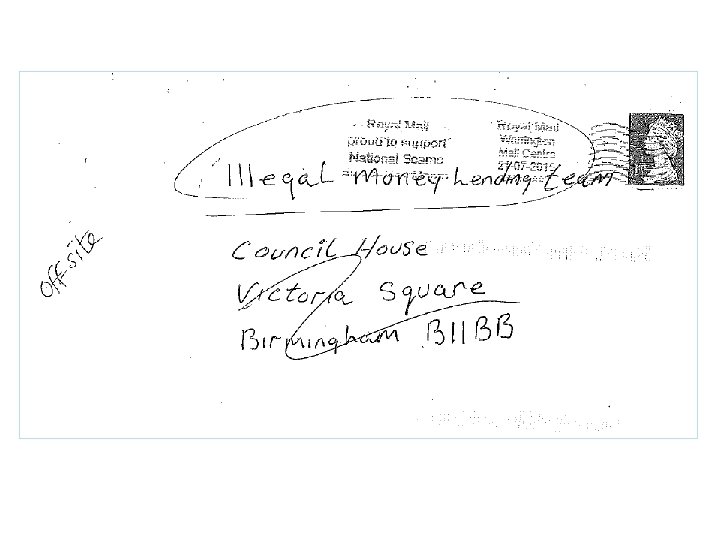 Royal Mail
proud to support
National Scams
Royal Mail
Warrington
Mail Centre
Illegal Money Lending team
Council House
Victoria Square
Birmingham B11BB
Off-site